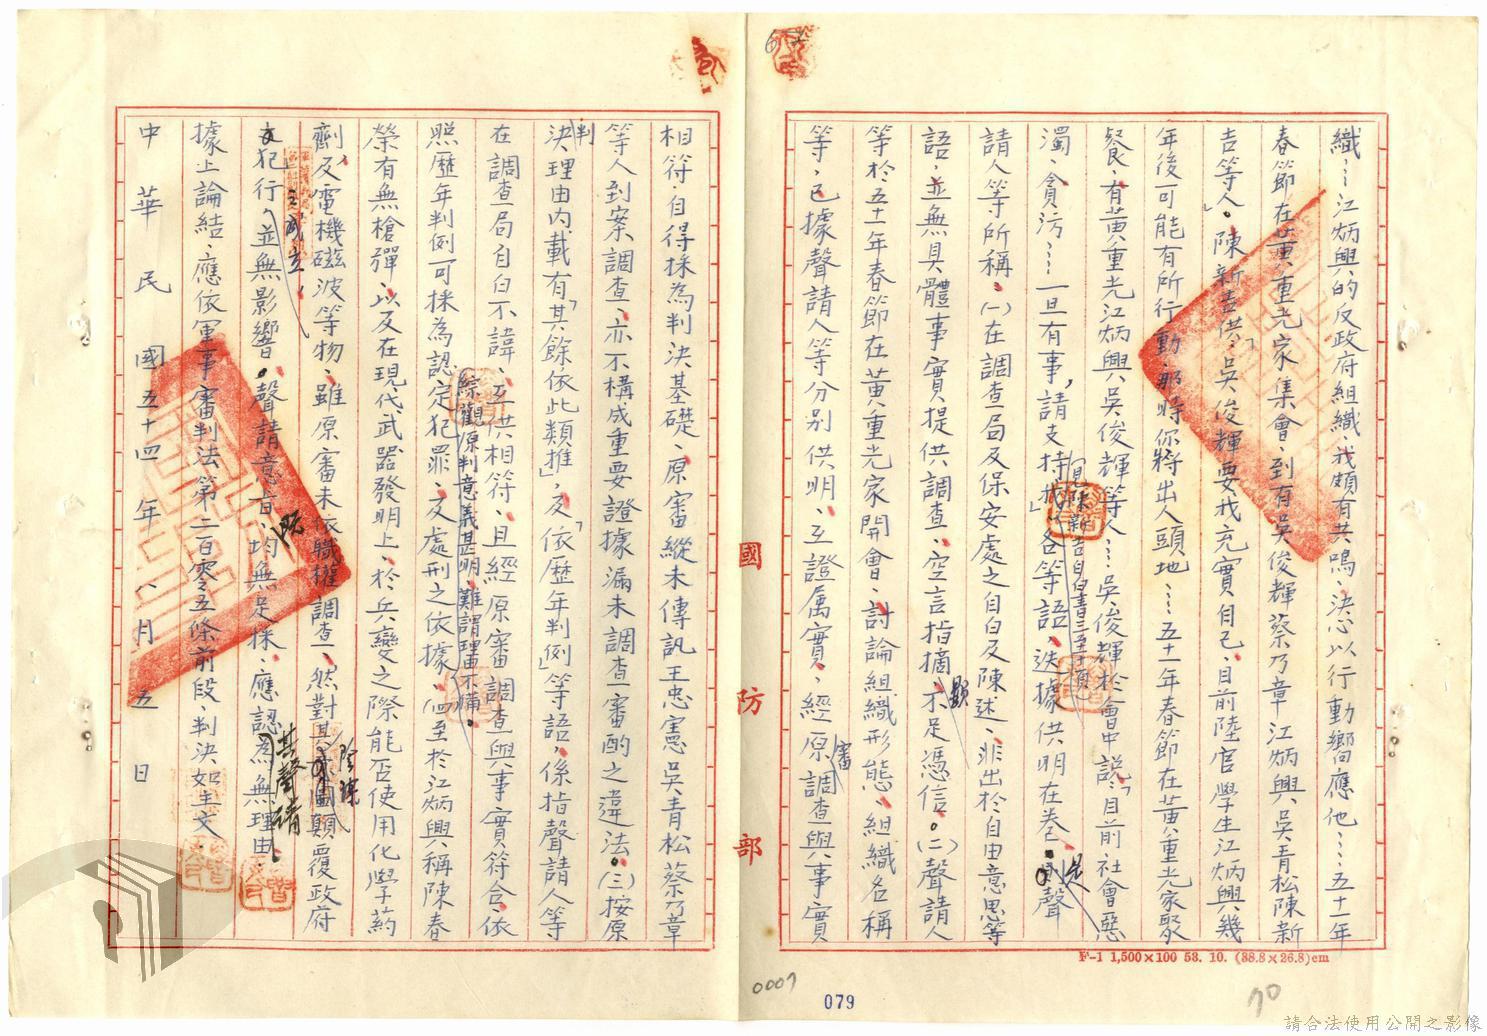 織……江炳興的反政府組織、我頗有共鳴、決心以行動響應他……五十一年
春節在黃重光家集會、到有吳俊輝蔡乃章江炳興吳青松陳新
吉等人」。陳新吉供「吳俊輝要我充實自己、目前陸官學生江炳興幾
年後可能有所行動、那時你將出人頭地……五十一年春節在黃重光家聚
餐、有黃重光江炳興吳俊輝等人……吳俊輝於會中說、目前社會惡
濁、貪污……一旦有事、請支持我」
見陳新吉自白書三至十頁
各等語、迭據供明在卷。
是
聲
請人等所稱、(一)在調查局及保安處之自白及陳述、非出於自由意思等
語、並無具體事實提供調查、空言指摘、
顯
不足憑信。(二)聲請人
等於五十一年春節在黃重光家開會、討論組織形態、組織名稱
等、已據聲請人等分別供明、互證屬實、經原
審
調查與事實
相符、自得採為判決基礎、原審縱未傳訊王忠憲吳青松蔡乃章
等人到案調查、亦不構成重要證據漏未調查審酌之違法。(三)按原
判
決理由內載有「其餘依此類推」、及「依歷年判例」等語、係指聲請人等
在調查局自白不諱、互供相符、且經原審調查與事實符合、依
綜觀原判意義甚明、難謂理由不備。
照歷年判例可採為認定犯罪、及處刑之依據、(四)至於江炳興稱陳春
榮有無槍彈、以及在現代武器發明上、於兵變之際能否使用化學葯
劑及電機磁波等物、雖原審未依職權調查、然對其
陰謀
顛覆政府
犯行
之成立、
並無影響。聲請意旨、
既
均無足採、
其聲請
應認為無理由、
據上論結、應依軍事審判法第二百零五條前段、判決如主文、
中華民國五十四年八月五日
國防部
F-1 1,500×100 53. 10. (38.8×26.8)cm
0007
079
70
請合法使用公開之影像